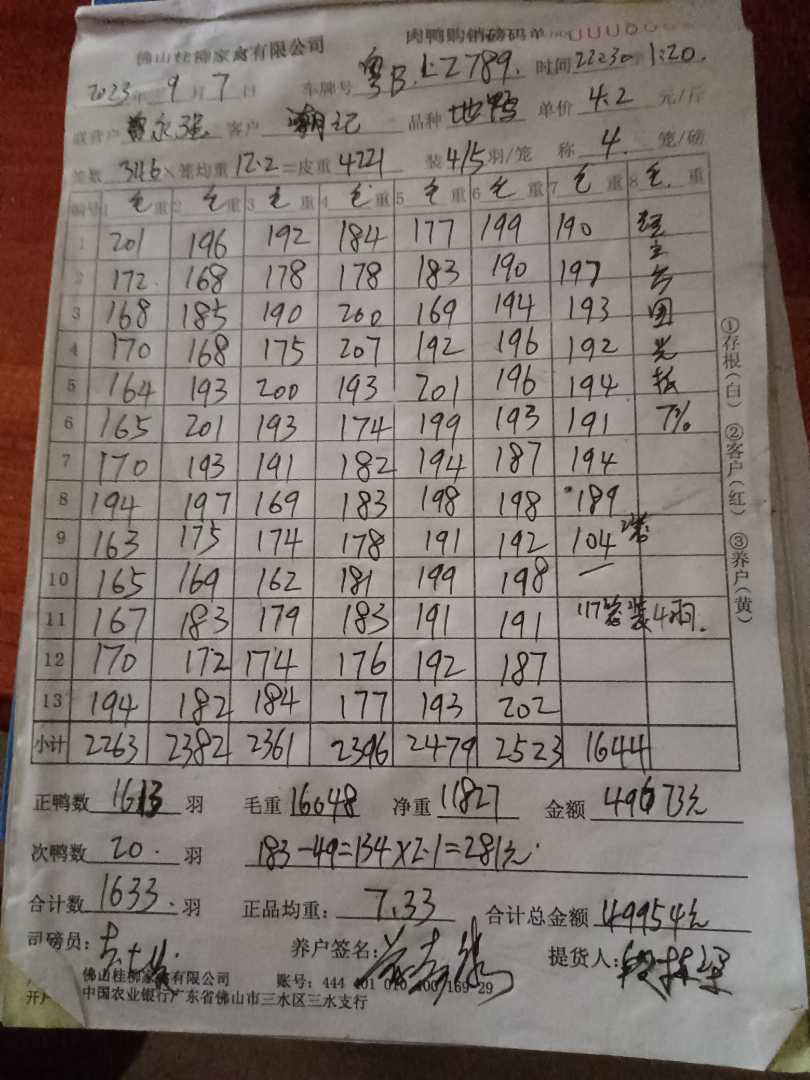 佛山桂柳家禽有限公司 肉鸭购销磅码单
2023年 9月 7日 车牌号 粤B.LZ789. 时间 22:30 1:20.
联营户 曾永强 客户 潮记 品种 地鸭 单价 4.2 元/斤
笼数 346 × 笼均重 12.2 = 皮重 4221 装 4/5 羽/笼 称 4. 笼/磅
编号 1 毛重 2 毛重 3 毛重 4 毛重 5 毛重 6 毛重 7 毛重 8 毛重
1 201 196 192 184 177 199 190
2 172 168 178 178 183 190 197
3 168 185 190 200 169 194 193
4 170 168 175 207 192 196 192
5 164 193 200 193 201 196 194
6 165 201 193 174 199 193 191 7%
7 170 193 191 182 194 187 194
8 194 197 169 183 198 198 189
9 163 175 174 178 191 192 104 2笼
10 165 169 162 181 199 198
11 167 183 179 183 191 191 117笼装4羽.
12 170 172 174 176 192 187
13 194 182 184 177 193 202
小计 2263 2382 2361 2396 2479 2523 1644
正鸭数 1613 羽 毛重 16048 净重 11827 金额 49673元
次鸭数 20. 羽 183-49=134×2.1=281元.
合计数 1633. 羽 正品均重: 7.33 合计总金额 49954元
司磅员: 养户签名: 提货人:
佛山桂柳家禽有限公司 账号: 444 401 010 400 169 29
开户 中国农业银行广东省佛山市三水区三水支行
①存根(白) ②客户(红) ③养户(黄)